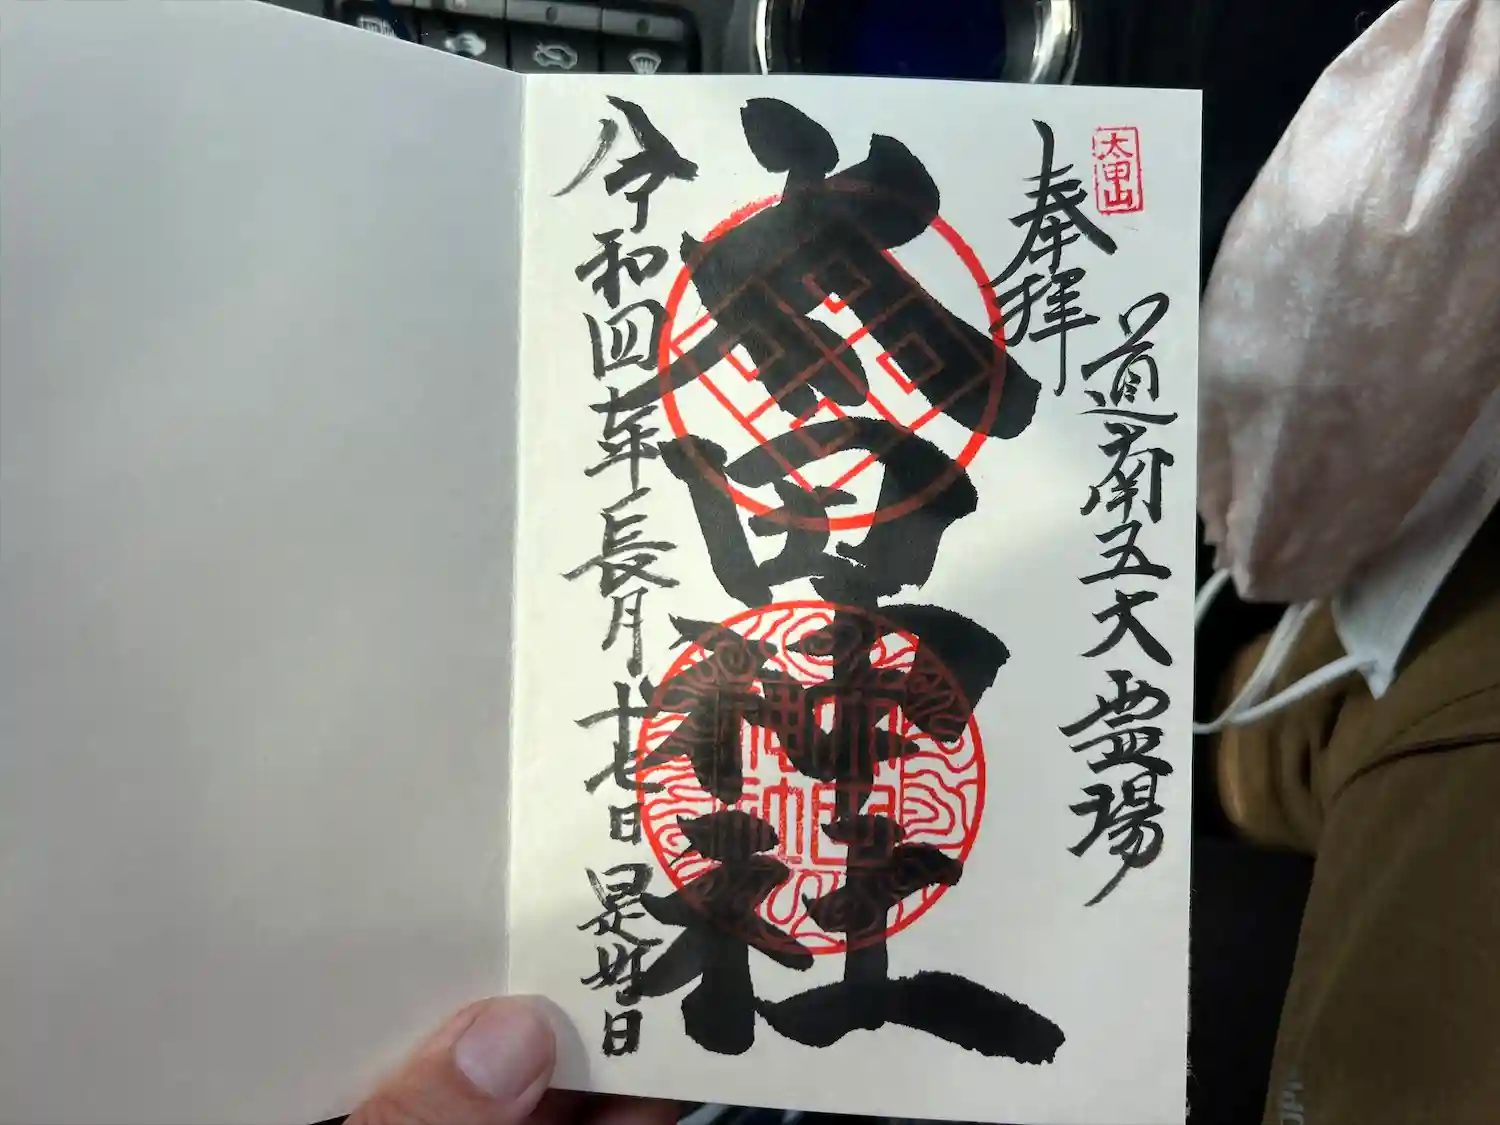 太田山
道南五大霊場
奉拝
太田神社
令和四年長月十七日 是好日